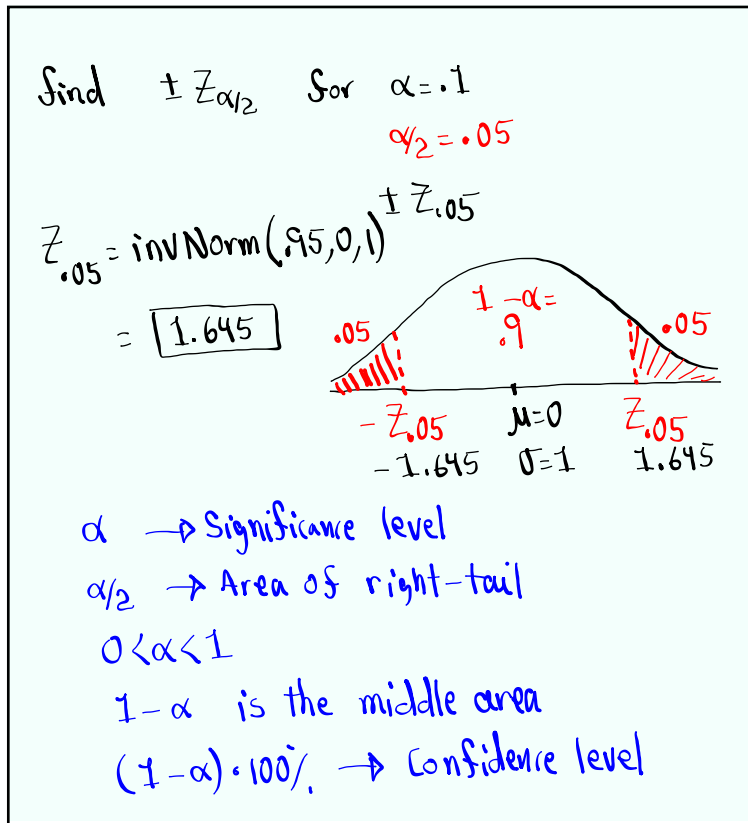 find ± Z α/2 for α = .1
α/2 = .05
± Z .05
Z .05 = invNorm(.95,0,1)
= 1.645
1 - α =
.9
.05 .05
- Z .05 μ=0 Z .05
- 1.645 σ=1 1.645
α → Significance level
α/2 → Area of right-tail
0<α<1
1-α is the middle area
(1-α)·100% → Confidence level